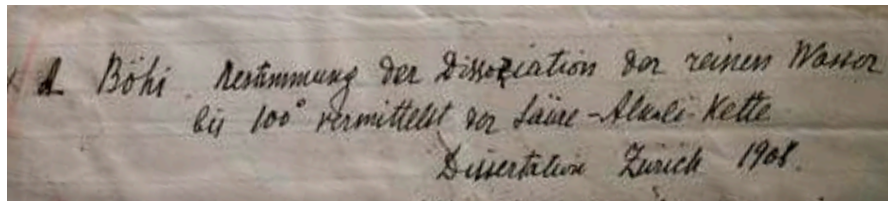 A Böhi. Bestimmung der Dissoziation der reinen Wasser
bis 100° vermittelst der Säure-Alkali-Kette
Dissertation Zürich 1908.